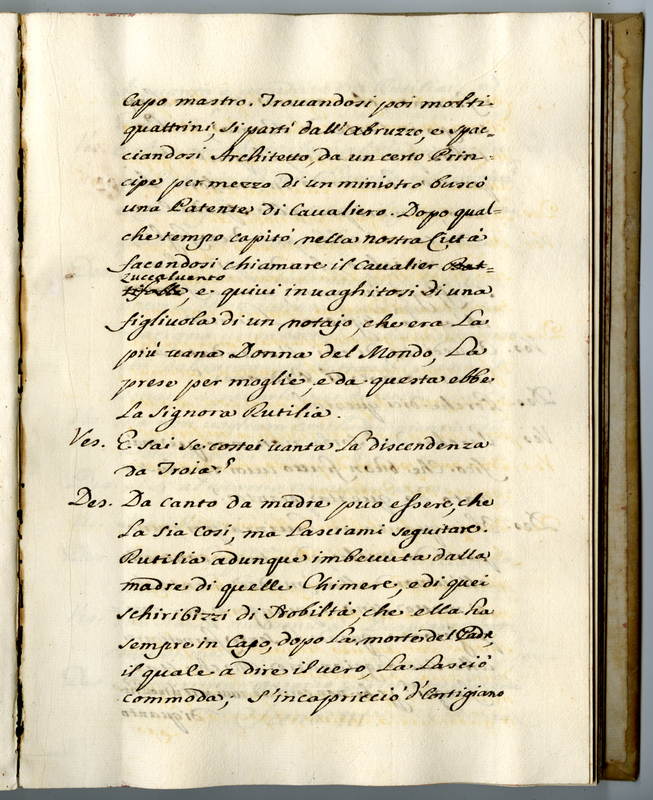 Capo mastro. Trovandosi poi molti
quattrini, si partì dall'Abruzzo, e spac-
ciandosi Architetto, da un certo Prin-
cipe per mezzo di un ministro buscò
una Patente di Cavaliero. Dopo qual=
che tempo capitò nella nostra Città
facendosi chiamare il Cavalier Bat-
zuccaluento
, e quivi invaghitosi di una
figliuola di un notajo, che era La
più vana Donna del Mondo, La
prese per moglie, e da questa ebbe
La Signora Rutilia.
Ves. E sai se costei vanta La discendenza
da Troia?
Des. Da canto da madre può essere, che
La sia così, ma Lasciami seguitare.
Rutilia adunque imbevuta dalla
madre di quelle Chimere, e di quei
schiribizzi di Nobiltà, che ella ha
sempre in Capo, dopo La morte del Padre,
il quale a dire il vero, La Lasciò
commoda, s'incapricciò d'Cortigiano